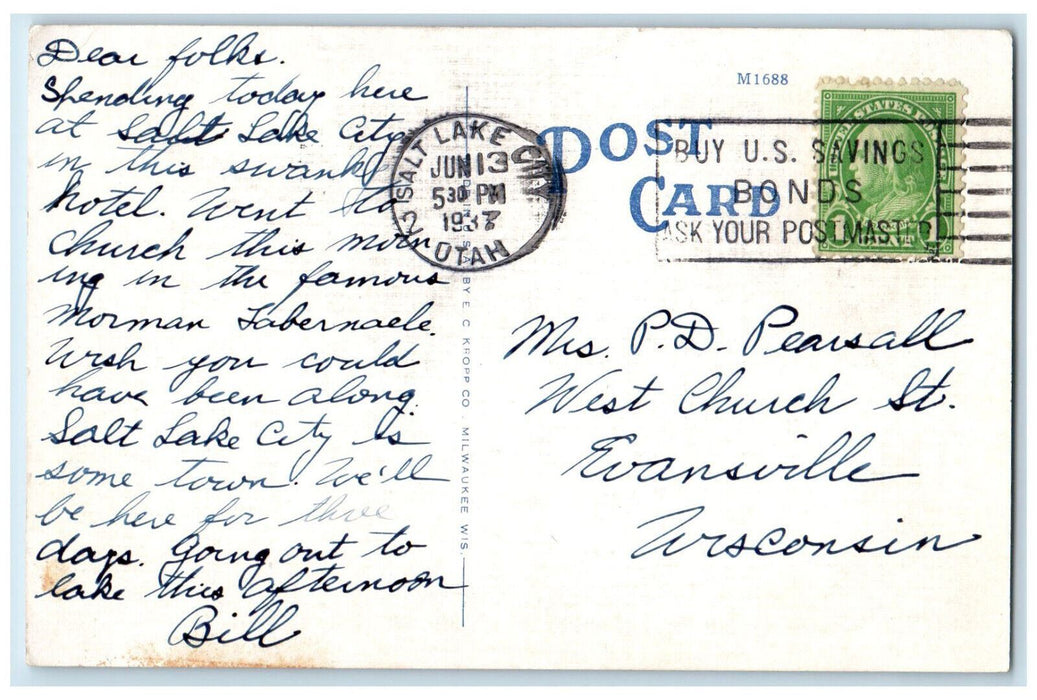 Dear folks.
Spending today here
at Salt Lake City
in this swanky
hotel. Went to
Church this morn
ing in the famous
Morman Tabernacle.
Wish you could
have been along.
Salt Lake City is
some town. We'll
be here for three
days. Going out to
lake this afternoon
Bill
M1688
POST
CARD
SALT LAKE CITY
JUN 13
5 30 PM
1937
UTAH
2
BUY U.S. SAVINGS
BONDS
ASK YOUR POSTMASTER
UNITED STATES
BY E. C. KROPP CO. MILWAUKEE, WIS.
Mrs. P.D. Pearsall
West Church St.
Evansville
Wisconsin